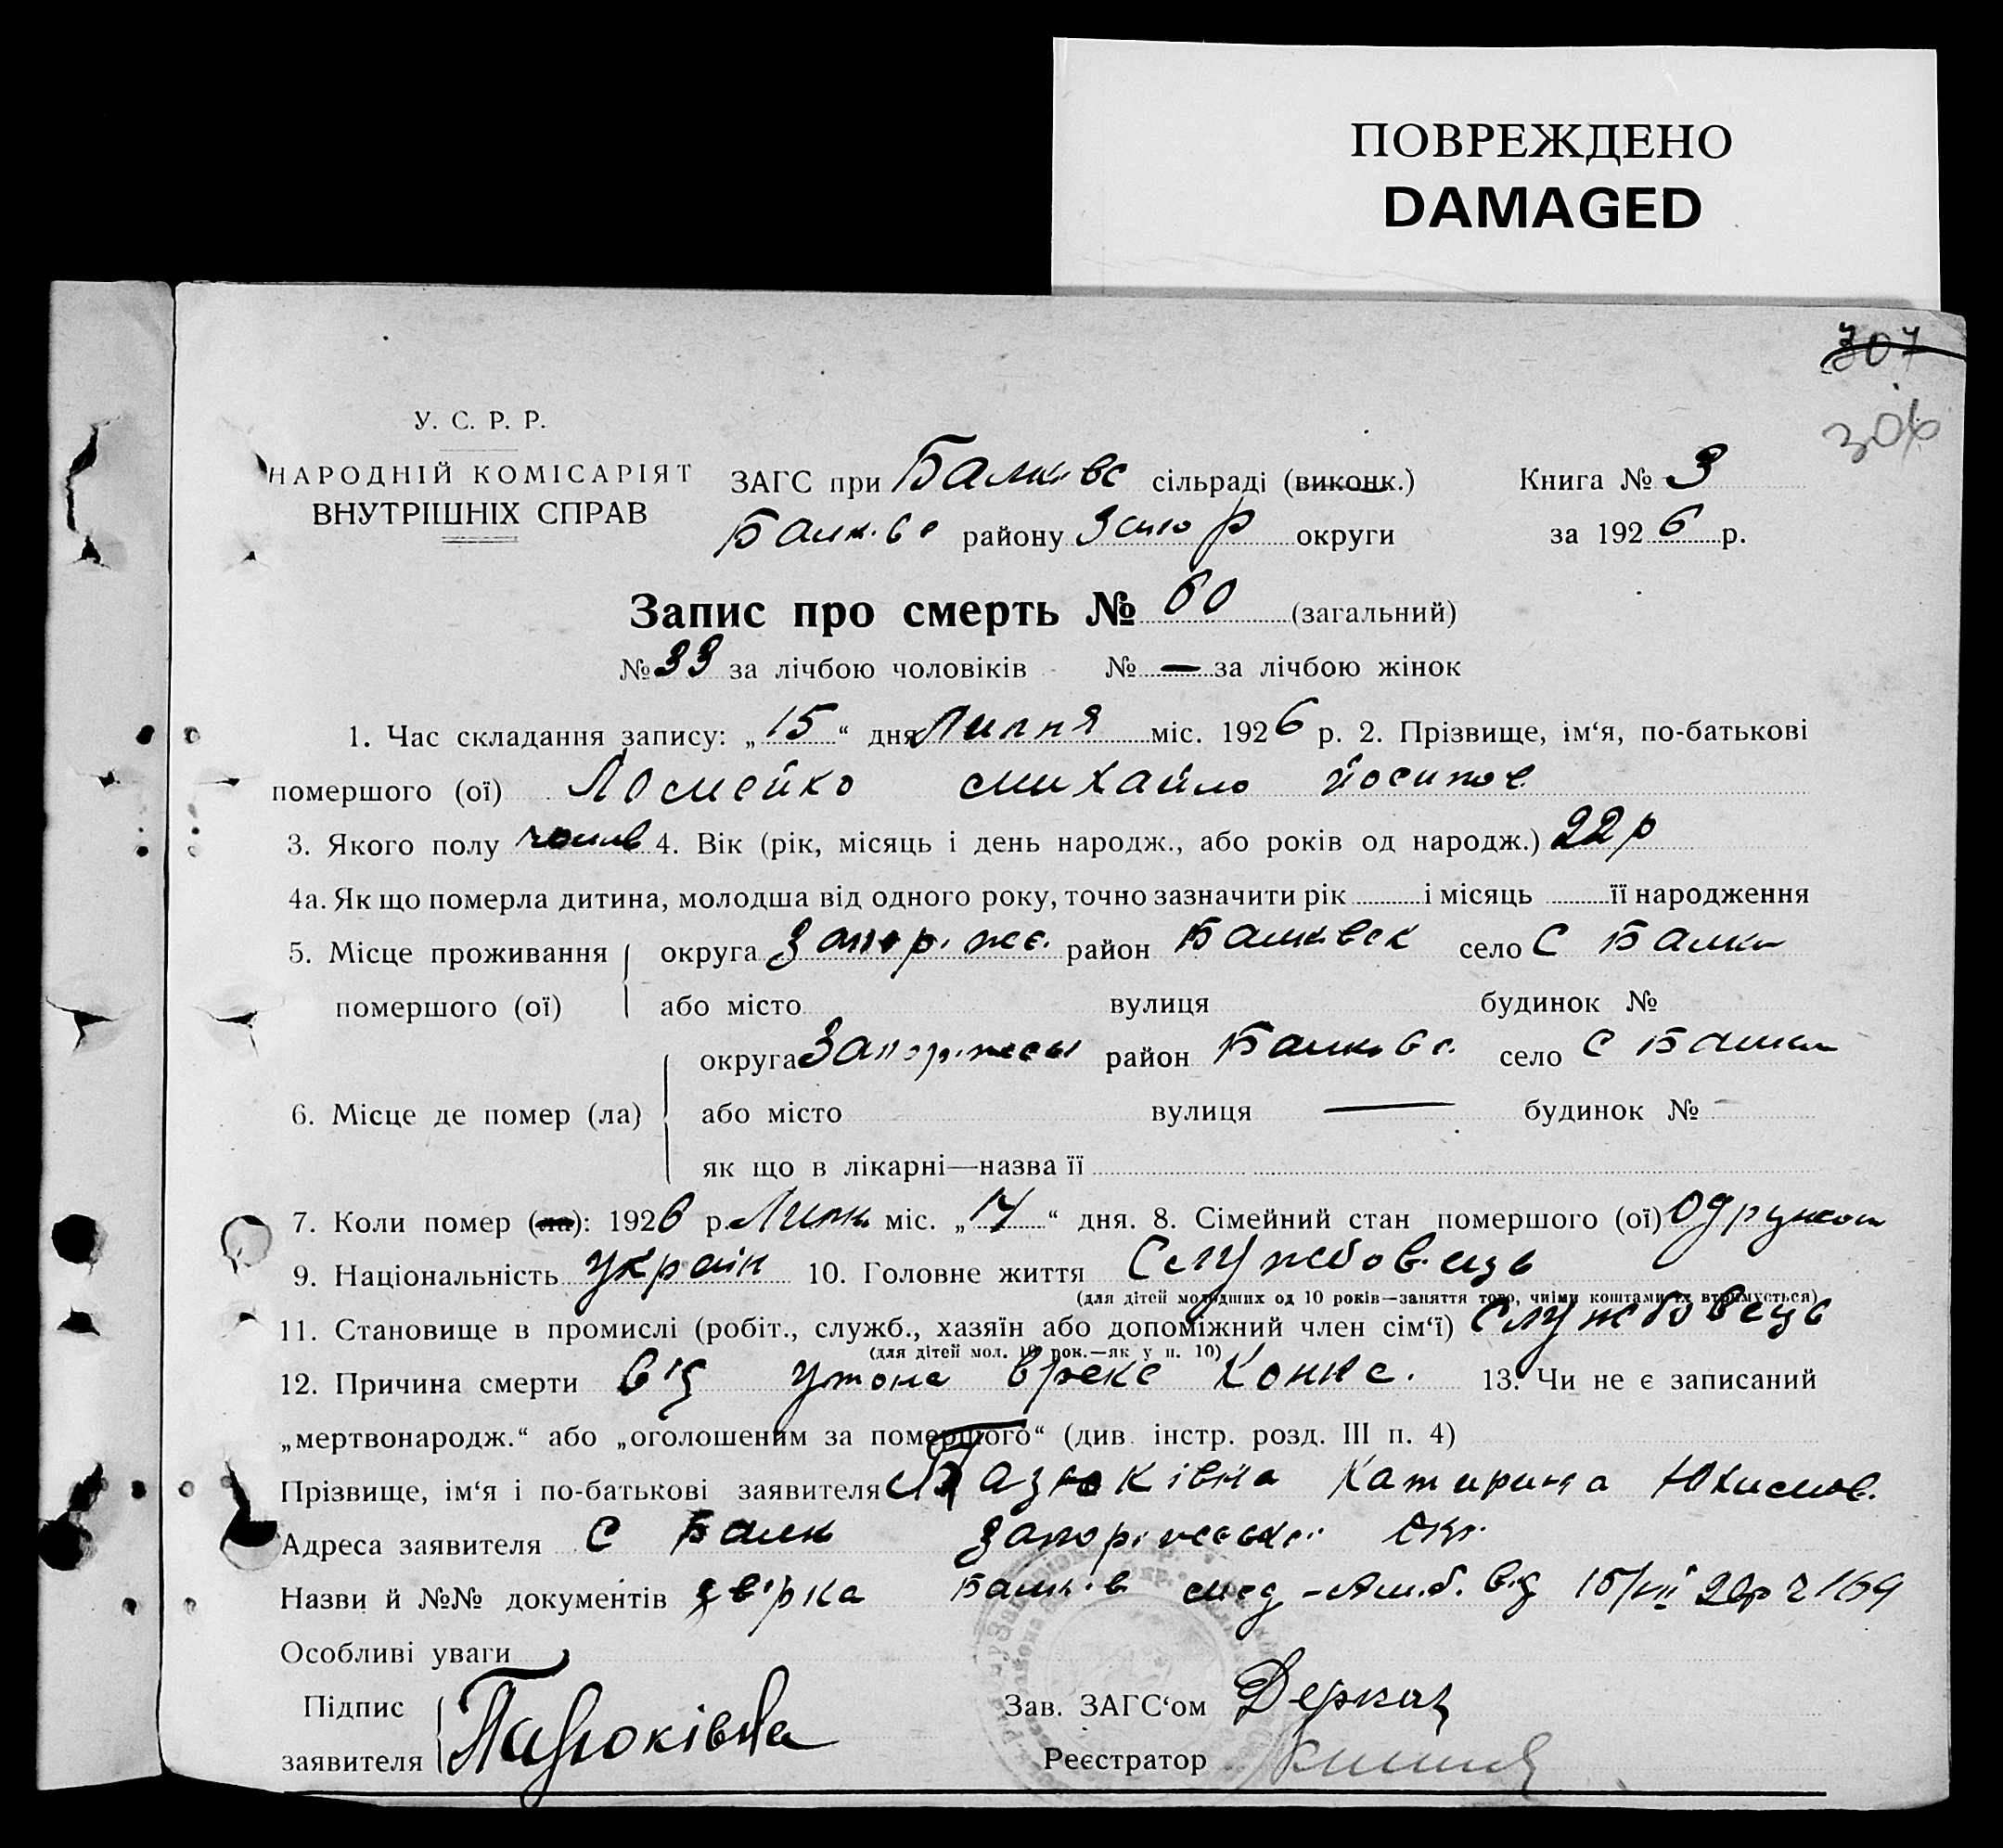 ПОВРЕЖДЕНО
DAMAGED
307
306
У. С. Р. Р.
НАРОДНІЙ КОМІСАРІЯТ
ВНУТРІШНІХ СПРАВ
ЗАГС при Балківс сільраді (виконк.) Книга № 3
Балківс району Запор округи за 1926 р.
Запис про смерть № 60 (загальний)
№ 33 за лічбою чоловіків № — за лічбою жінок
1. Час складання запису: „15“ дня Липня міс. 1926 р. 2. Прізвище, ім‘я, по-батькові
помершого (ої) Ломейко Михайло Йосипов
3. Якого полу чолов 4. Вік (рік, місяць і день народж., або років од народж.) 22 р
4а. Як що померла дитина, молодша від одного року, точно зазначити рік і місяць її народження
5. Місце проживання округа Запоріж. район Балківск село С Балки
помершого (ої) або місто вулиця будинок №
округа район Балківс. село С Балки
6. Місце де помер (ла) або місто вулиця — будинок № —
як що в лікарні—назва її
7. Коли помер (ла): 1926 р. Липн міс. „14“ дня. 8. Сімейний стан помершого (ої)
9. Національність Україн 10. Головне життя Службовець
(для дітей молодших од 10 років—заняття того, чиїми коштами їх втримується)
11. Становище в промислі (робіт., служб., хазяїн або допоміжний член сім‘ї) Службовець
(для дітей мол. 10 рок.—як у п. 10)
12. Причина смерти від утопа в реке Конке. 13. Чи не є записаний
„мертвонародж.“ або „оголошеним за помершого“ (див. інстр. розд. III п. 4)
Прізвище, ім‘я і по-батькові заявителя Пазюківна Катирина Юхимов.
Адреса заявителя С Балки Запоріжської Окр.
Назви й №№ документів Балків мед-Амб. від 15/VII 26р 169
Особливі уваги
Підпис
заявителя Пазюківна
Зав. ЗАГС‘ом Деркач
Реєстратор